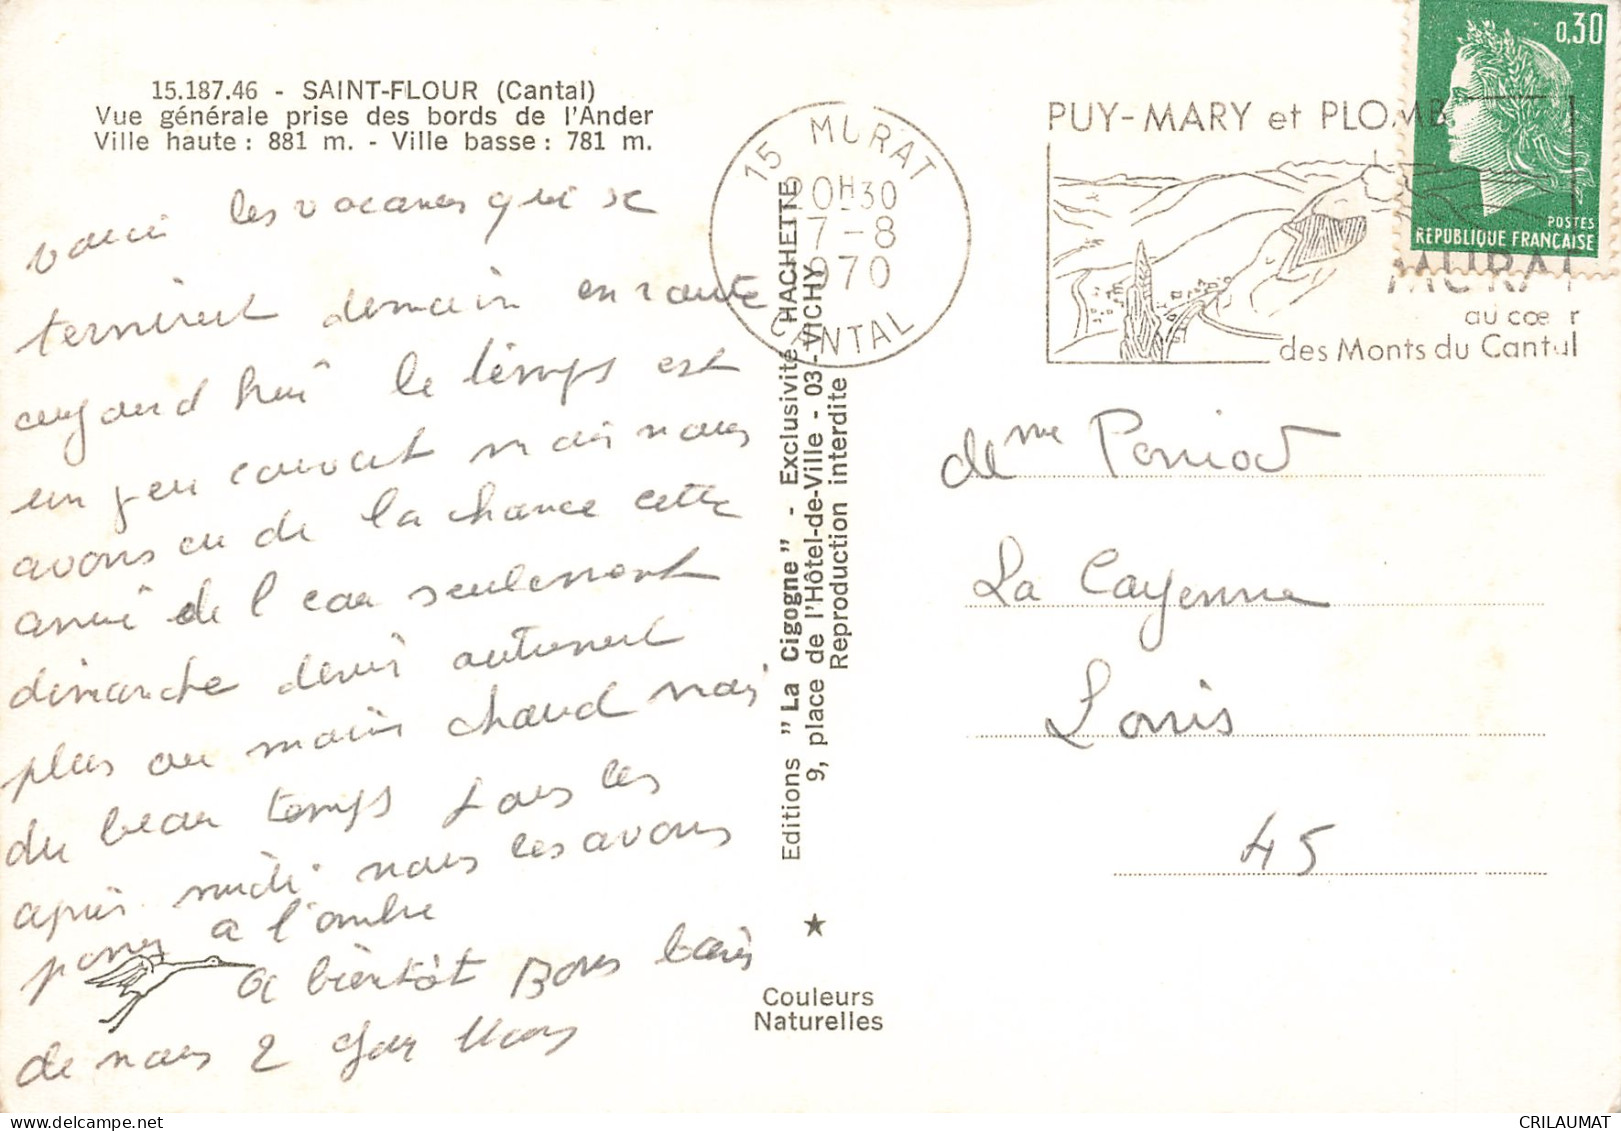 15.187.46 - SAINT-FLOUR (Cantal)
Vue générale prise des bords de l'Ander
Ville haute : 881 m. - Ville basse : 781 m.
voici les vacances qui se
terminent demain en route
aujourd hui le temps est
un peu couvert mais nous
avons eu de la chance cette
année de l eau seulement
dimanche dernier autrement
plus ou moins chaud mais
du beau temps tous les
après midi nous les avons
passer a l'ombre
a bientôt Bons baisers
de nous 2
Editions "La Cigogne" - Exclusivité HACHETTE
9, place de l'Hôtel-de-Ville - 03 - VICHY
Reproduction interdite
★
Couleurs
Naturelles
15 MURAT
20H30
7-8
1970
CANTAL
PUY-MARY et PLOMB
MURAT
au cœur
des Monts du Cantal
0,30
POSTES
REPUBLIQUE FRANÇAISE
me
La Cayenne
Lorris
45
CRILAUMAT